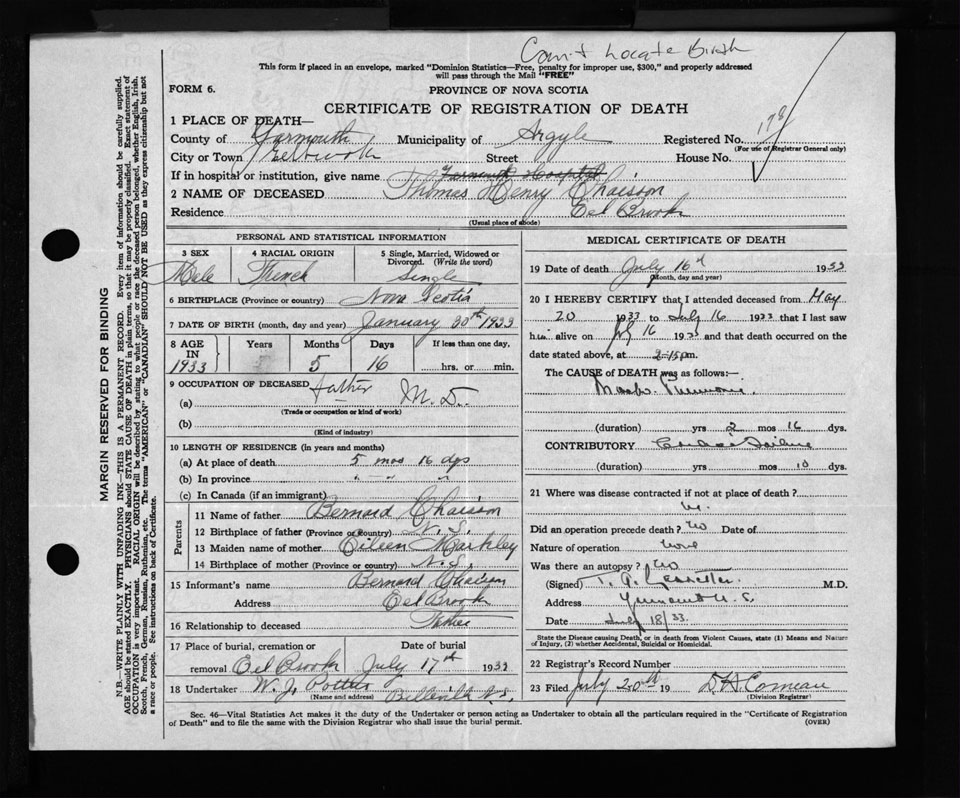 Can't Locate Birth
This form if placed in an envelope, marked "Dominion Statistics—Free, penalty for improper use, $300," and properly addressed
will pass through the Mail "FREE"
FORM 6.
PROVINCE OF NOVA SCOTIA
CERTIFICATE OF REGISTRATION OF DEATH
1 PLACE OF DEATH—
County of Yarmouth Municipality of Argyle Registered No. 178
(For use of Registrar General only)
City or Town Eel Brook Street House No.
If in hospital or institution, give name Yarmouth Hospital
2 NAME OF DECEASED Thomas Henry Chaisson
Residence Eel Brook
(Usual place of abode)
PERSONAL AND STATISTICAL INFORMATION
3 SEX 4 RACIAL ORIGIN 5 Single, Married, Widowed or
Divorced. (Write the word)
Male French Single
6 BIRTHPLACE (Province or country) Nova Scotia
7 DATE OF BIRTH (month, day and year) January 30th 1933
8 AGE Years Months Days If less than one day,
IN
1933 5 16 hrs. or min.
9 OCCUPATION OF DECEASED father
(a) M. D.
(Trade or occupation or kind of work)
(b)
(Kind of industry)
10 LENGTH OF RESIDENCE (in years and months)
(a) At place of death 5 mos 16 dys
(b) In province " — "
(c) In Canada (if an immigrant)
Parents
11 Name of father Bernard Chaisson
12 Birthplace of father (Province or country) N. S.
13 Maiden name of mother Eileen Markley
14 Birthplace of mother (Province or country) N.S.
15 Informant's name Bernard Chaisson
Address Eel Brook
16 Relationship to deceased Father
17 Place of burial, cremation or Date of burial
removal Eel Brook July 17th 1933
18 Undertaker W. J. Pottier Belleville N.S.
(Name and address)
MEDICAL CERTIFICATE OF DEATH
19 Date of death July 16th 1933
(Month, day and year)
20 I HEREBY CERTIFY that I attended deceased from May
20 1933 to July 16 1933 that I last saw
him alive on July 16 1933 and that death occurred on the
date stated above, at 2.15 pm.
The CAUSE of DEATH was as follows:—
Pneumonia
(duration) yrs 2 mos 16 dys.
CONTRIBUTORY Cardiac Failure
(duration) yrs mos 10 dys.
21 Where was disease contracted if not at place of death?
Did an operation precede death? No Date of
Nature of operation none
Was there an autopsy? No
(Signed) T. A. M.D.
Address Yarmouth N. S.
Date July 18/33.
State the Disease causing Death, or in death from Violent Causes, state (1) Means and Nature
of Injury, (2) whether Accidental, Suicidal or Homicidal.
22 Registrar's Record Number
23 Filed July 20th 19 D. H. Comeau
(Division Registrar)
Sec. 46—Vital Statistics Act makes it the duty of the Undertaker or person acting as Undertaker to obtain all the particulars required in the "Certificate of Registration
of Death" and to file the same with the Division Registrar who shall issue the burial permit. (OVER)
MARGIN RESERVED FOR BINDING
N.B.—WRITE PLAINLY WITH UNFADING INK—THIS IS A PERMANENT RECORD. Every item of information should be carefully supplied.
AGE should be stated EXACTLY. PHYSICIANS should STATE CAUSE OF DEATH in plain terms, so that it may be properly classified. Exact statement of
OCCUPATION is very important. RACIAL ORIGIN will be described by stating to what people or race the deceased person belonged, whether English, Irish,
Scotch, French, German, Russian, Ruthenian, etc. The terms "AMERICAN" or "CANADIAN" SHOULD NOT BE USED as they express citizenship but not
a race or people. See instructions on back of Certificate.